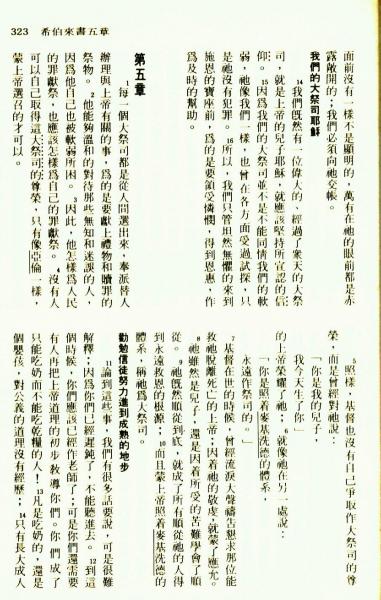 323　希伯來書五章
面前沒有一樣不是顯明的，萬有在祂的眼前都是赤
露敞開的；我們必須向祂交帳。
我們的大祭司耶穌
14我們既然有一位偉大的，經過了眾天的大祭
司，就是上帝的兒子耶穌，就應該堅持所宣認的信
仰。15因為我們的大祭司並不是不能同情我們的軟
弱，祂像我們一樣，也曾在各方面受過試探，只
是祂沒有犯罪。16所以，我們只管坦然無懼的來到
施恩的寶座前，為的是要領受憐憫，得到恩惠，作
為及時的幫助。
第五章
1每一個大祭司都是從人間選出來，奉派替人
辦理上帝有關的事，為的是要獻上禮物和贖罪的
祭物。2他能夠溫和的對待那些無知和迷誤的人，
因為他自己也被軟弱所困。3因此，他怎樣為人民
的罪獻祭，也應該怎樣為自己的罪獻祭。4沒有人
可以自己取得這大祭司的尊榮，只有像亞倫一樣，
蒙上帝選召的才可以。
5照樣，基督也沒有自己爭取作大祭司的尊
榮，而是曾經對祂說：
「你是我的兒子，
我今天生了你」
的上帝榮耀了祂；6就像祂在另一處說：
「你是照着麥基洗德的體系，
永遠作祭司的。」
7基督在世的時候，曾經流淚大聲禱告懇求那位能
救祂脫離死亡的上帝；因着祂的敬虔，就蒙了應允。
8祂雖然是兒子，還是因着所受的苦難學會了順
從。9祂既然順從到底，就成了所有順從祂的人得
到永遠救恩的根源；10而且蒙上帝照着麥基洗德的
體系，稱祂為大祭司。
勸勉信徒努力進到成熟的地步
11論到這些事，我們有很多話要說，可是很難
解釋；因為你們已經遲鈍了，不能聽進去。12到這
個時候，你們應該已經作老師了；可是你們還需要
有人再把上帝道理的初步教導你們。你們成了
只能吃奶而不能吃乾糧的人！13凡是吃奶的，還是
個嬰孩，對公義的道理沒有經歷；14只有長大成人